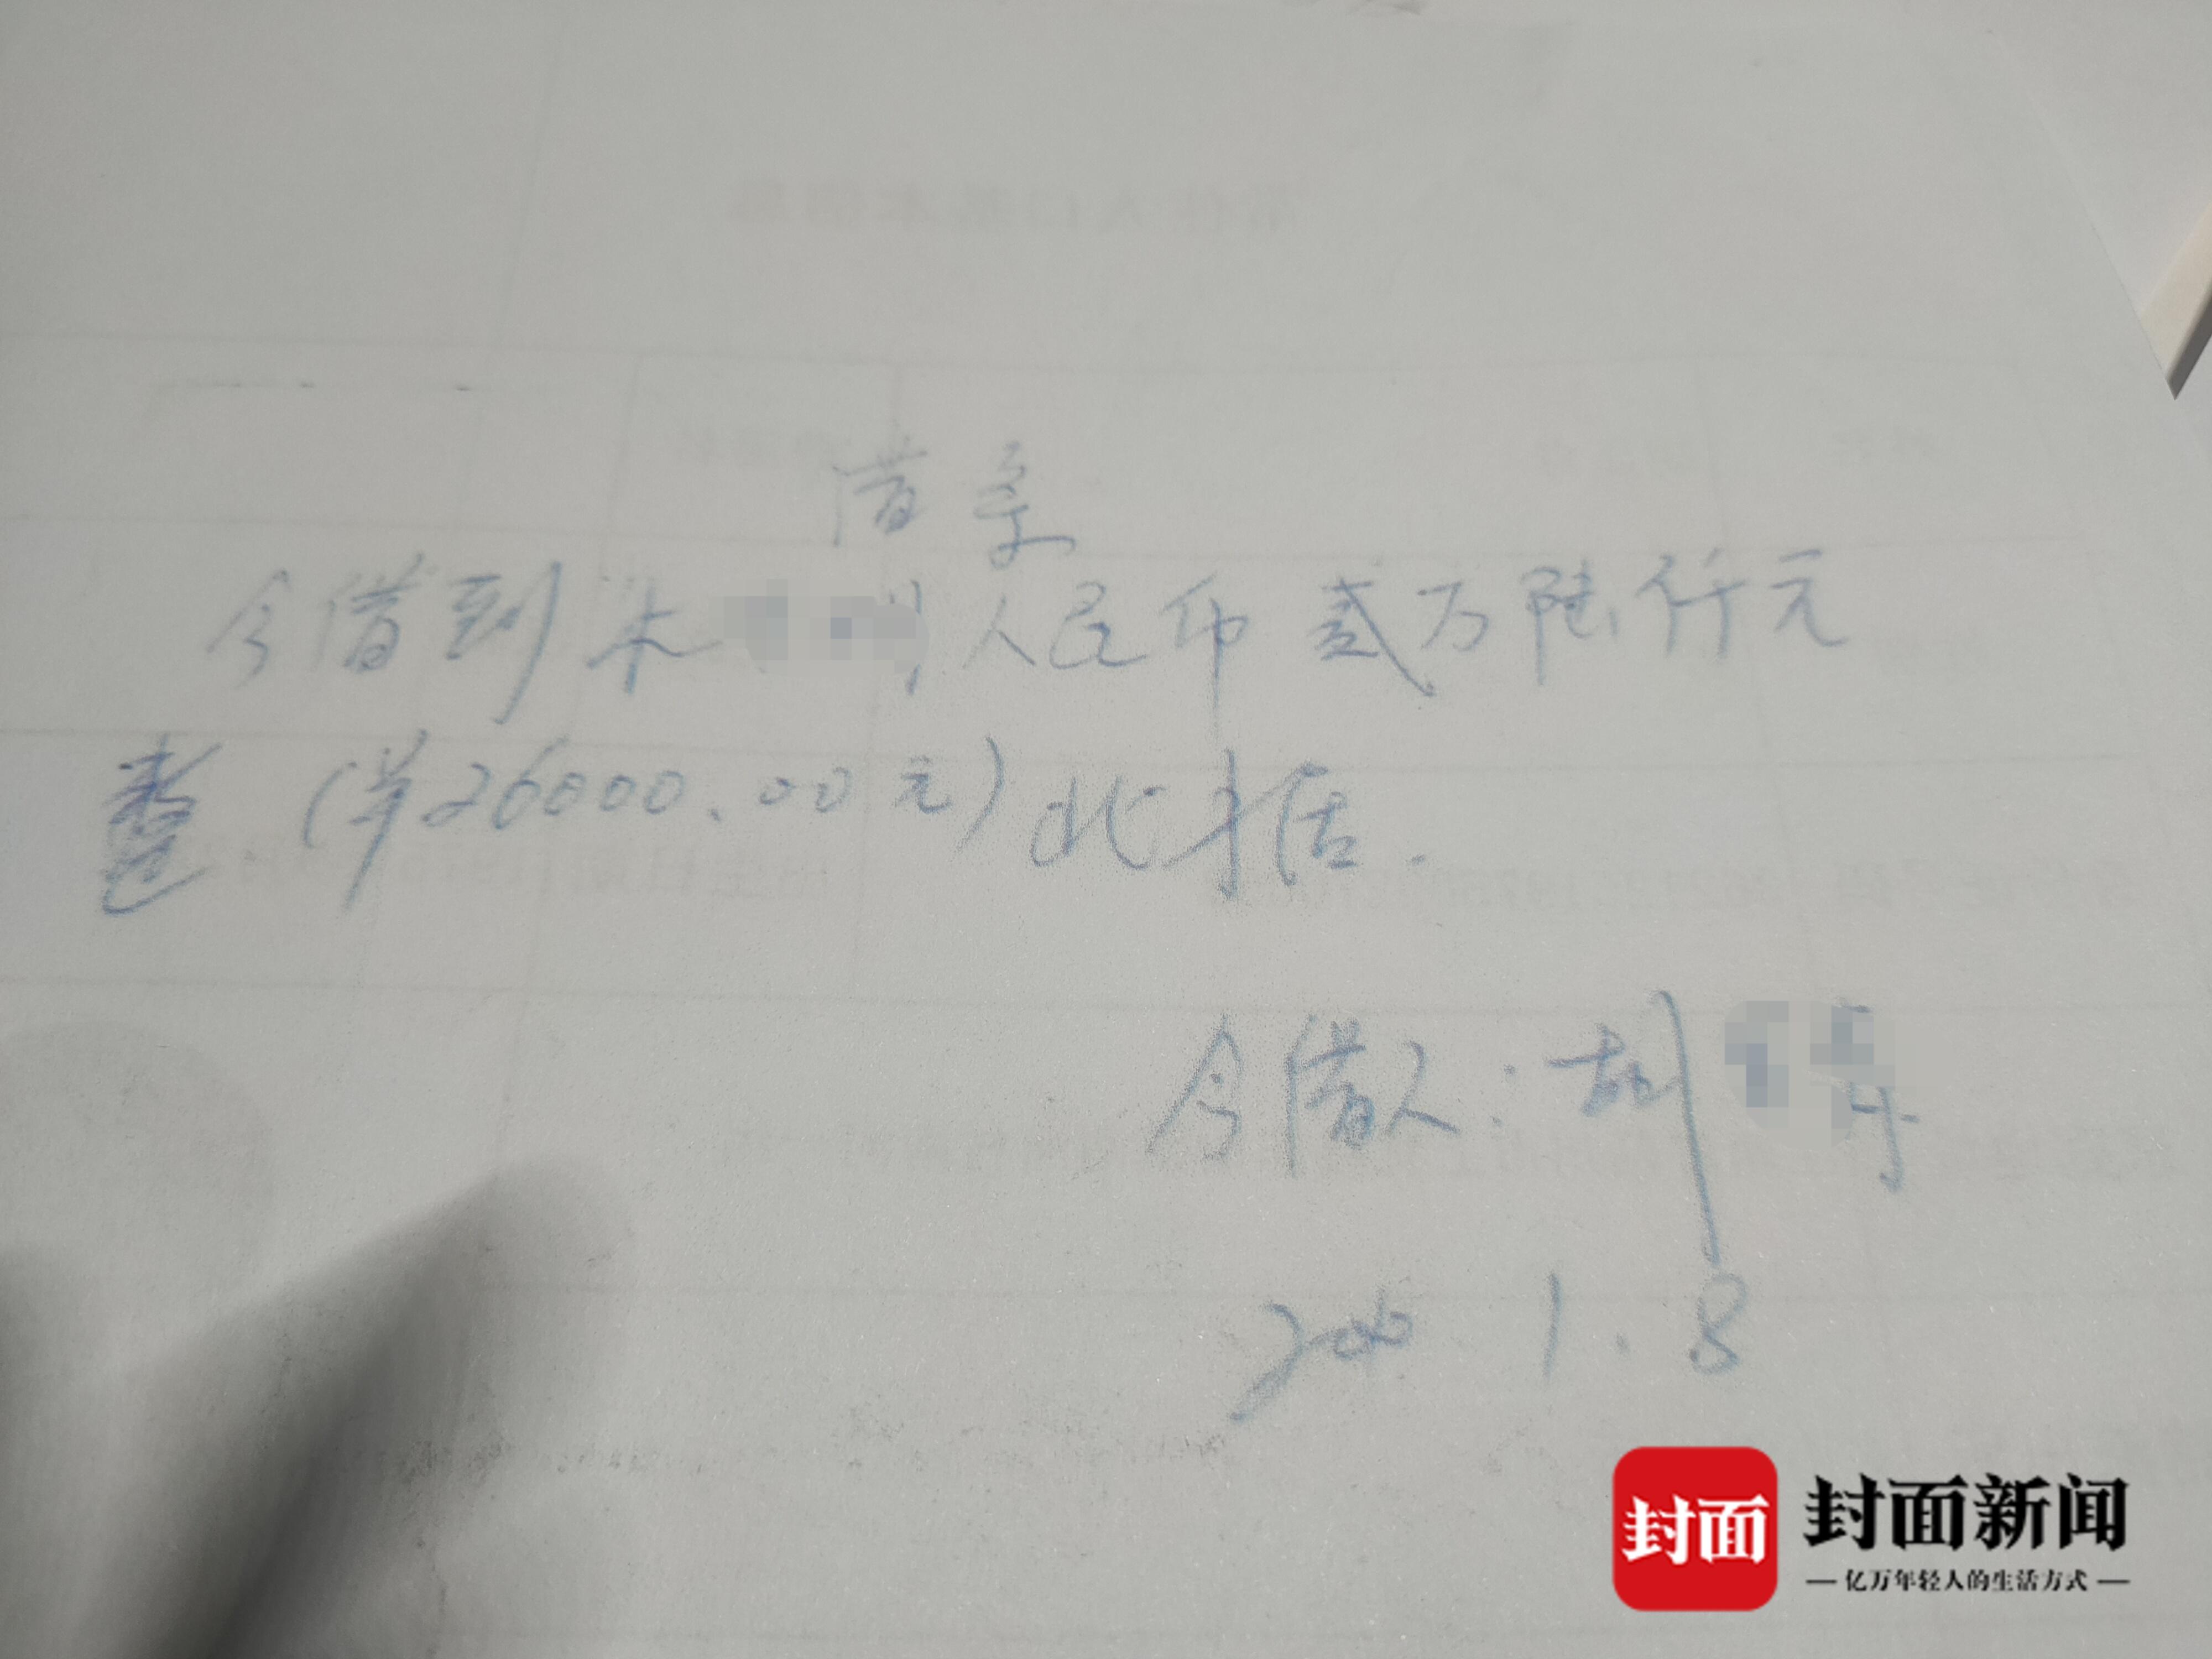 借条
今借到木 人民币贰万陆仟元
整（¥26000.00元）此据.
今借人：胡
1.8
封面
封面新闻
亿万年轻人的生活方式